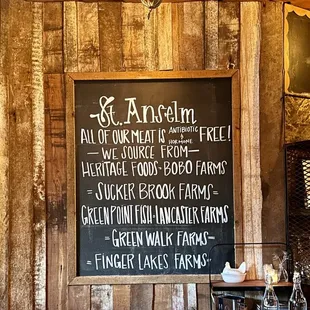 St. Anselm
ALL OF OUR MEAT IS ANTIBIOTIC & HORMONE FREE!
— WE SOURCE FROM —
HERITAGE FOODS - BOBO FARMS
= SUCKER BROOK FARMS =
GREEN POINT FISH - LANCASTER FARMS
= GREEN WALK FARMS =
= FINGER LAKES FARMS =